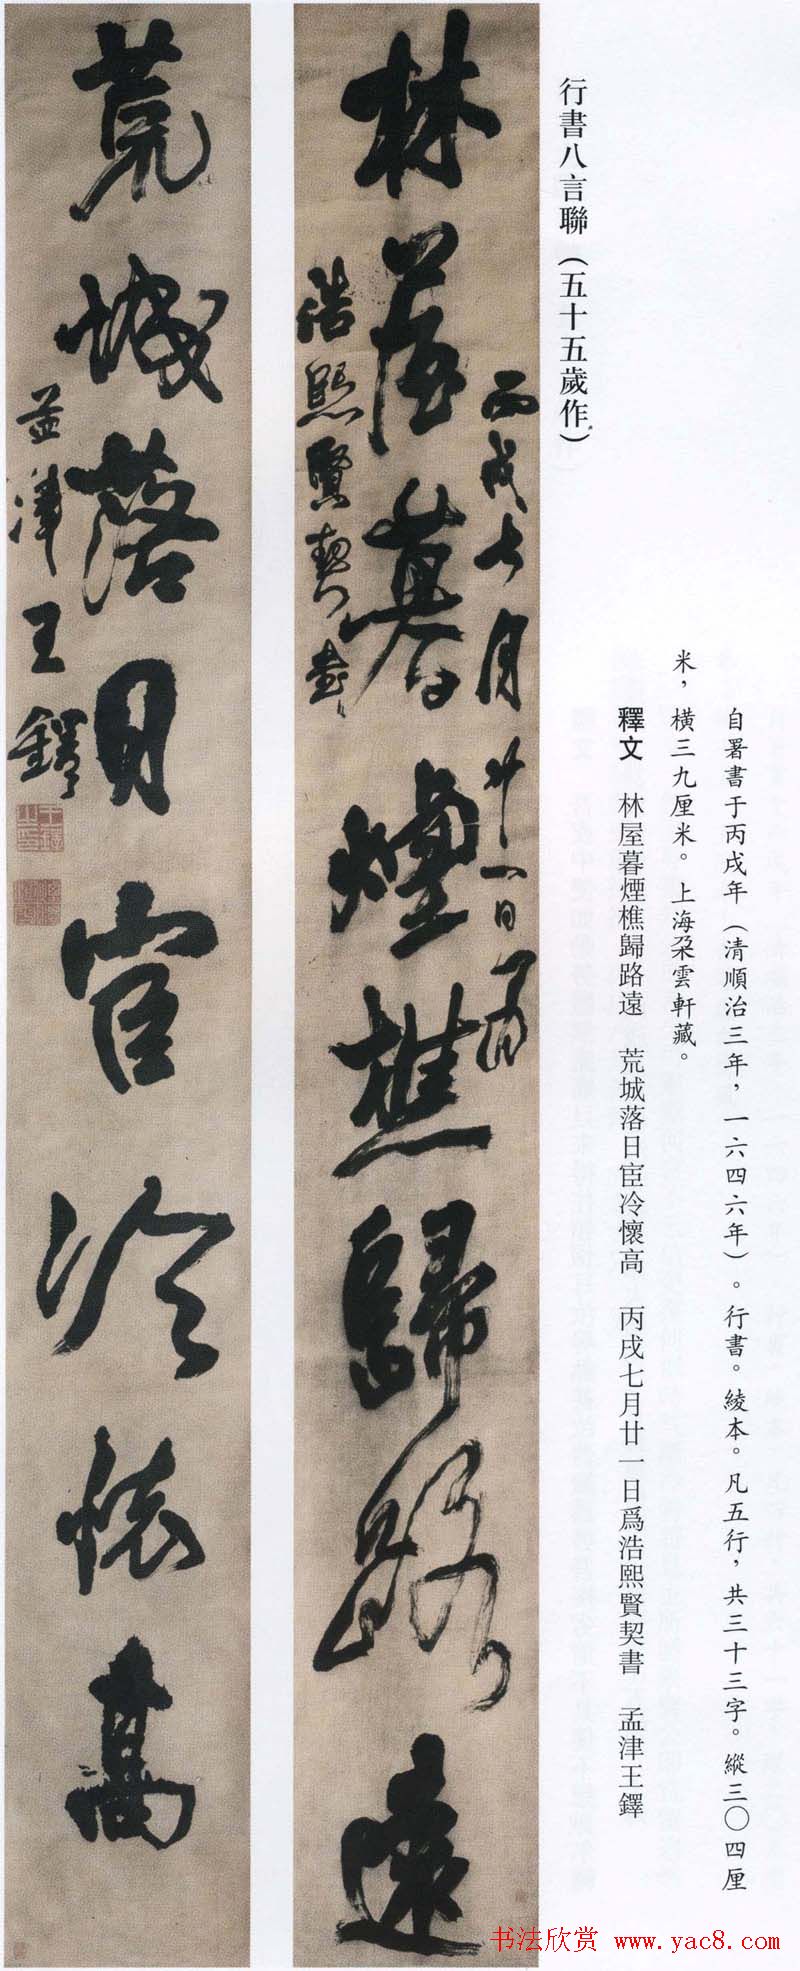 自署書于丙戌年（清順治三年，一六四六年）。行書。綾本。凡五行，共三十三字。縱三〇四厘
米，橫三九厘米。上海朵雲軒藏。
釋文　林屋暮煙樵歸路遠　荒城落日宦冷懷高　丙戌七月廿一日爲浩熙賢契書　孟津王鐸
行書八言聯（五十五歲作）
丙戌七月廿一日爲
林屋暮煙樵歸路遠
浩熙賢契書
荒城落日宦冷懷高
孟津王鐸
书法欣赏 www.yac8.com